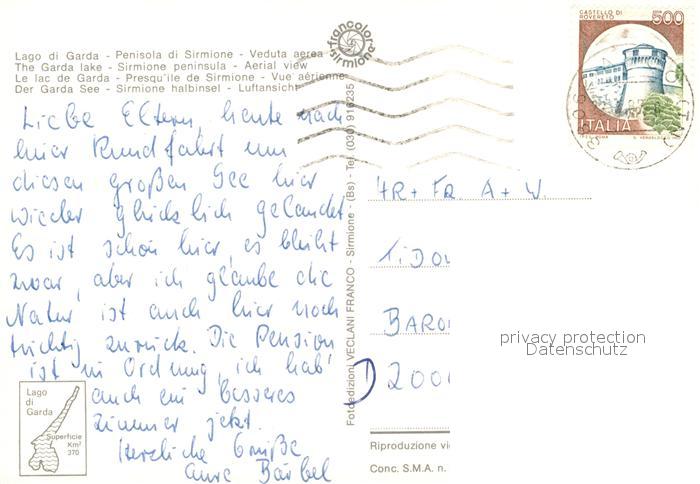 francolor
sirmione
CASTELLO DI
ROVERETO
500
ITALIA
Lago di Garda - Penisola di Sirmione - Veduta aerea
The Garda lake - Sirmione peninsula - Aerial view
Le lac de Garda - Presqu'ile de Sirmione - Vue aérienne
Der Garda See - Sirmione halbinsel - Luftansicht
Liebe Eltern, heute nach
hier Rundfahrt um
diesen großen See hier
wieder glücklich gelandet.
Es ist schön hier, es blüht
zwar, aber ich glaube die
Natur ist auch hier noch
tüchtig zurück. Die Pension
ist in Ordnung, ich hab'
auch ein besseres
Zimmer jetzt.
Herzliche Grüße
Eure Bärbel
Lago
di
Garda
Superficie
Km²
370
Fotoedizioni VECLANI FRANCO - Sirmione - (Bs) - Tel. (030) 916235
HR + FR A + W
TIDO
BARO
D 200
privacy protection
Datenschutz
Riproduzione vi
Conc. S.M.A. n.